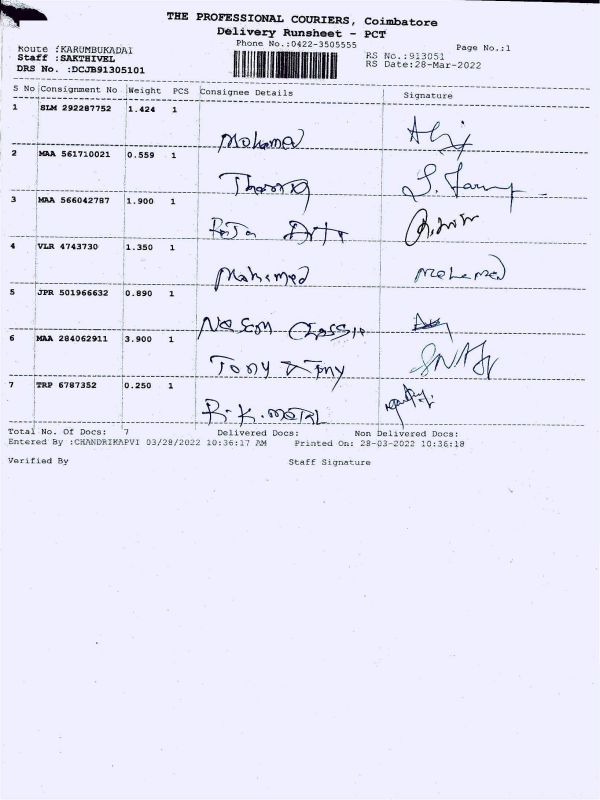 THE PROFESSIONAL COURIERS, Coimbatore
Delivery Runsheet - PCT
Phone No.:0422-3505555
Page No.:1
Route :KARUMBUKADAI
Staff :SAKTHIVEL
DRS No. :DCJB91305101
RS No.:913051
RS Date:28-Mar-2022
S No Consignment No Weight PCS Consignee Details Signature
1 SLM 292287752 1.424 1
Mohamed
2 MAA 561710021 0.559 1
3 MAA 566042787 1.900 1
4 VLR 4743730 1.350 1
Mohamed Mohamed
5 JPR 501966632 0.890 1
6 MAA 284062911 3.900 1
Tony
7 TRP 6787352 0.250 1
R.K. METAL
Total No. Of Docs: 7 Delivered Docs: Non Delivered Docs:
Entered By :CHANDRIKAPVI 03/28/2022 10:36:17 AM Printed On: 28-03-2022 10:36:18
Verified By Staff Signature